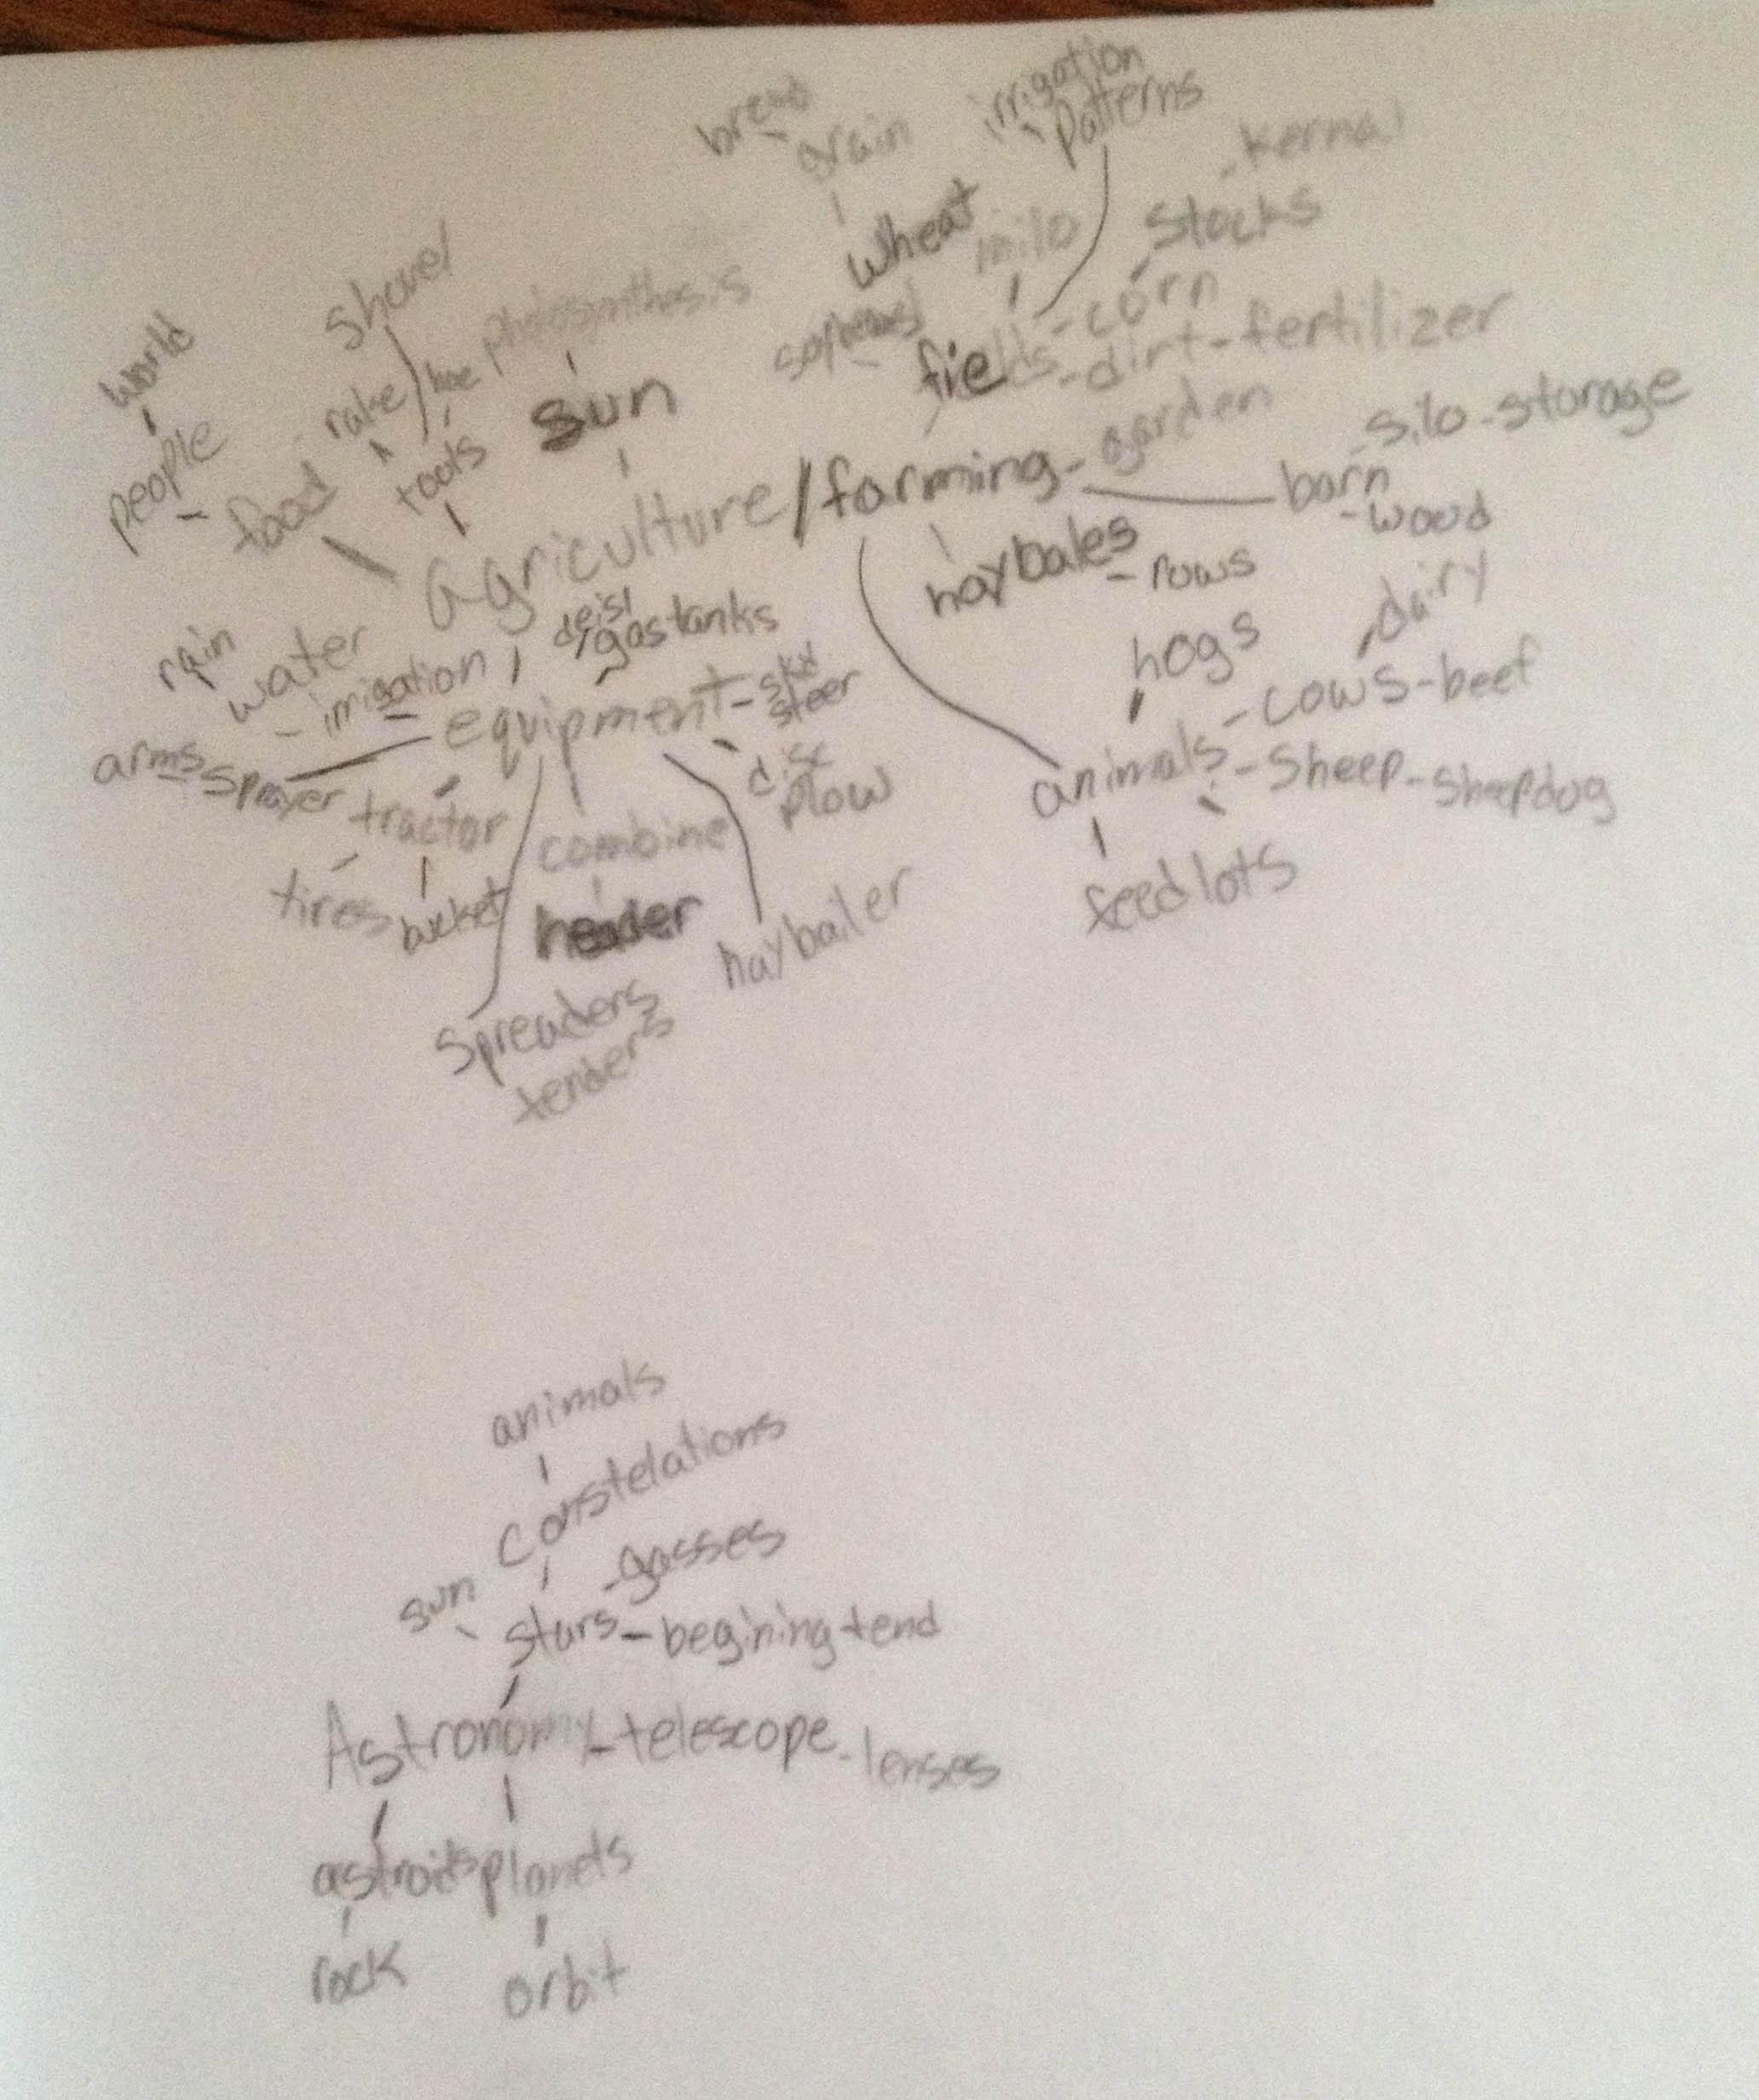 irrigation
patterns
bread
grain
kernal
wheat
milo
stocks
shovel
photosynthasis
soybeans
corn
world
rake/hoe
sun
fields
dirt-fertilizer
people
food
tools
garden
silo-storage
Agriculture/farming
barn
wood
haybales
rows
deisl
/gas tanks
hogs
dairy
rain
water
irrigation
equipment
skid
steer
animals
cows-beef
sheep-sheepdog
arms
sprayer
tractor
combine
disc
plow
feed lots
tires
bucket
header
haybailer
spreaders
tenders
animals
constelations
gasses
sun
stars-begining+end
Astronomy-telescope-lenses
astroids
planets
rock
orbit